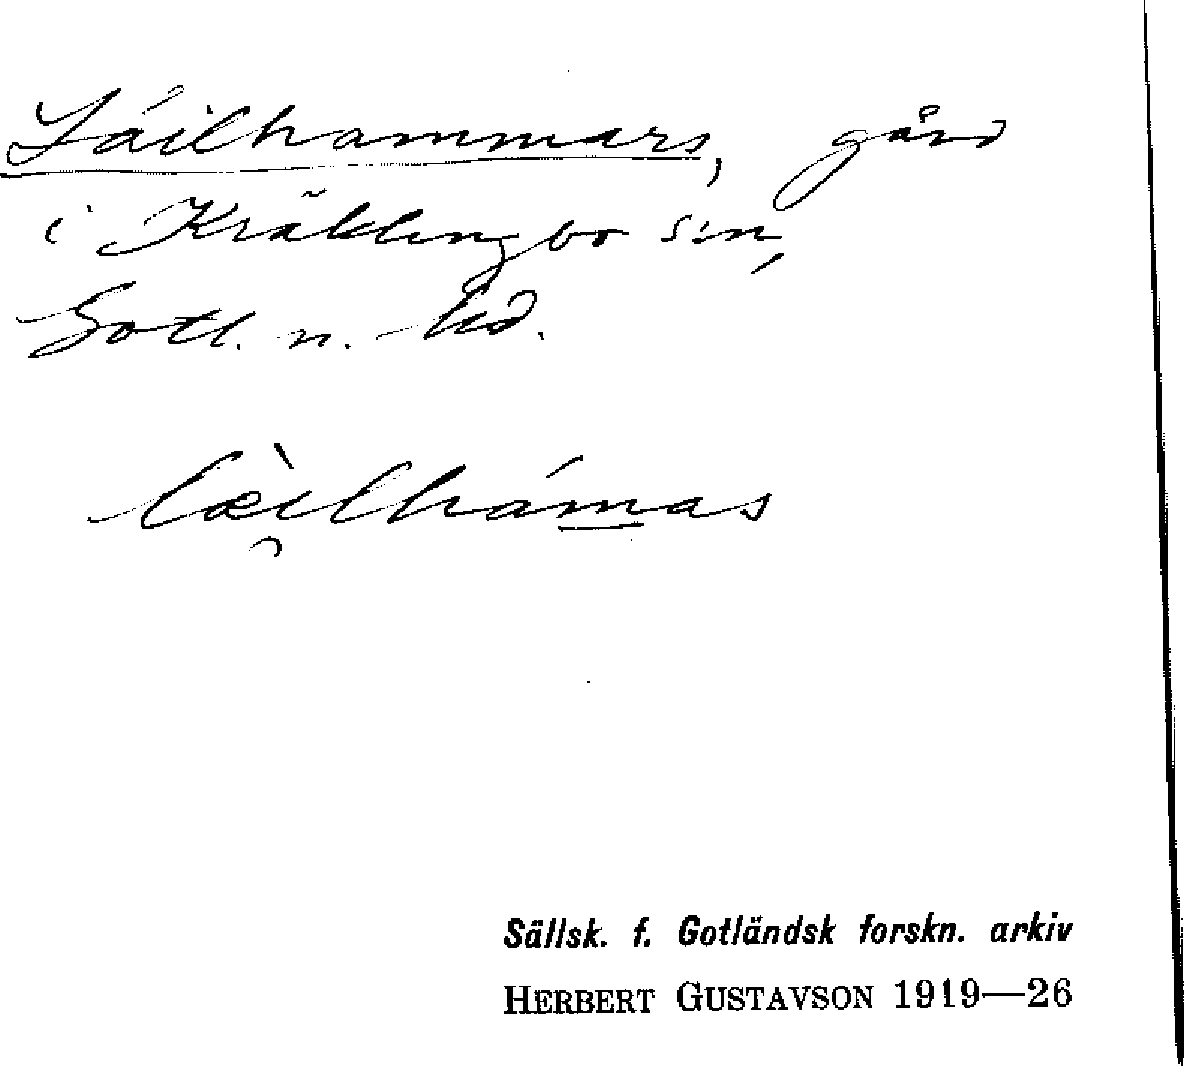 Láilhammars, gård
i Kräklingbo sn,
Gotl. n. hd.
læ̀ilhámas
Sällsk. f. Gotländsk forskn. arkiv
HERBERT GUSTAVSON 1919—26